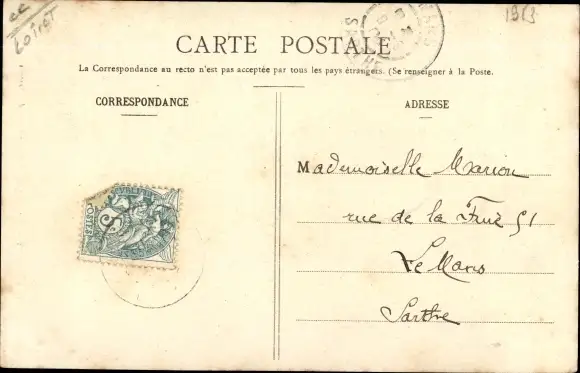 cc
Loiret
1913
CARTE POSTALE
La Correspondance au recto n'est pas acceptée par tous les pays étrangers. (Se renseigner à la Poste.
CORRESPONDANCE
ADRESSE
Mademoiselle Marion
rue de la 51
Le Mans
Sarthe
POSTES